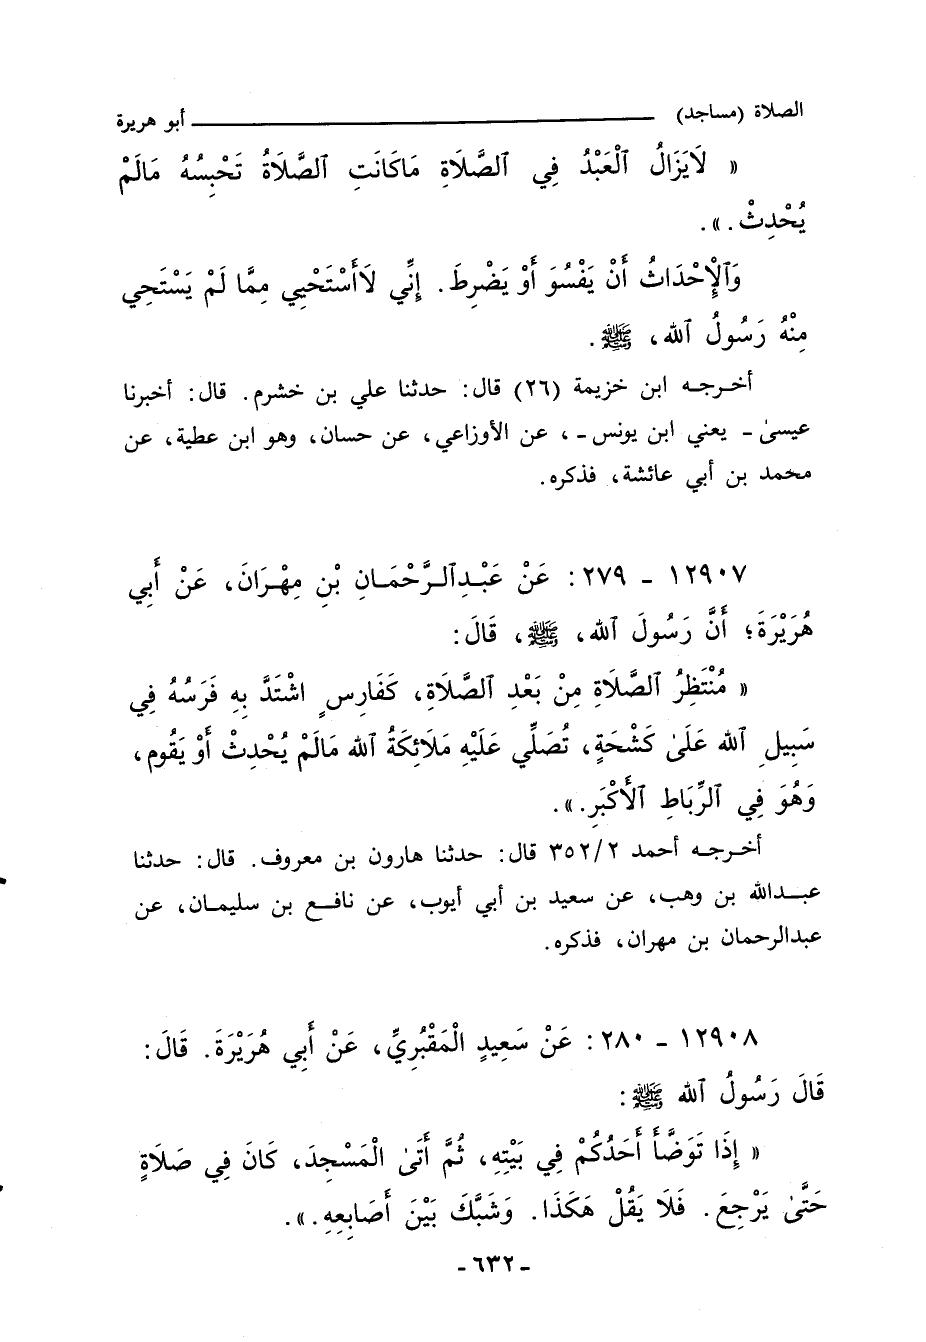 الصلاة (مساجد) ــــــــــــــــــ أبو هريرة
« لَايَزَالُ ٱلْعَبْدُ فِي ٱلصَّلَاةِ مَاكَانَتِ ٱلصَّلَاةُ تَحْبِسُهُ مَالَمْ
يُحْدِثْ . ».
وَٱلْإِحْدَاثُ أَنْ يَفْسُوَ أَوْ يَضْرِطَ. إِنِّي لَاأَسْتَحْيِي مِمَّا لَمْ يَسْتَحِي
مِنْهُ رَسُولُ ٱلله، ﷺ.
أخرجه ابن خزيمة (٢٦) قال: حدثنا علي بن خشرم. قال: أخبرنا
عيسىٰ - يعني ابن يونس -، عن الأوزاعي، عن حسان، وهو ابن عطية، عن
محمد بن أبي عائشة، فذكره.
١٢٩٠٧ - ٢٧٩: عَنْ عَبْدِٱلرَّحْمَانِ بْنِ مِهْرَانَ، عَنْ أَبِي
هُرَيْرَةَ؛ أَنَّ رَسُولَ ٱلله، ﷺ، قَالَ:
« مُنْتَظِرُ ٱلصَّلَاةِ مِنْ بَعْدِ ٱلصَّلَاةِ، كَفَارِسٍ اشْتَدَّ بِهِ فَرَسُهُ فِي
سَبِيلِ ٱلله عَلَىٰ كَشْحَةٍ، تُصَلِّي عَلَيْهِ مَلَائِكَةُ ٱلله مَالَمْ يُحْدِثْ أَوْ يَقُوم،
وَهُوَ فِي ٱلرِّبَاطِ ٱلْأَكْبَرِ. ».
أخرجه أحمد ٣٥٢/٢ قال: حدثنا هارون بن معروف. قال: حدثنا
عبدالله بن وهب، عن سعيد بن أبي أيوب، عن نافع بن سليمان، عن
عبدالرحمان بن مهران، فذكره.
١٢٩٠٨ - ٢٨٠: عَنْ سَعِيدٍ الْمَقْبُرِيِّ، عَنْ أَبِي هُرَيْرَةَ. قَالَ:
قَالَ رَسُولُ ٱلله ﷺ:
« إِذَا تَوَضَّأَ أَحَدُكُمْ فِي بَيْتِهِ، ثُمَّ أَتَىٰ الْمَسْجِدَ، كَانَ فِي صَلَاةٍ
حَتَّىٰ يَرْجِعَ. فَلَا يَقُلْ هَكَذَا. وَشَبَّكَ بَيْنَ أَصَابِعِهِ. ».
- ٦٣٢ -